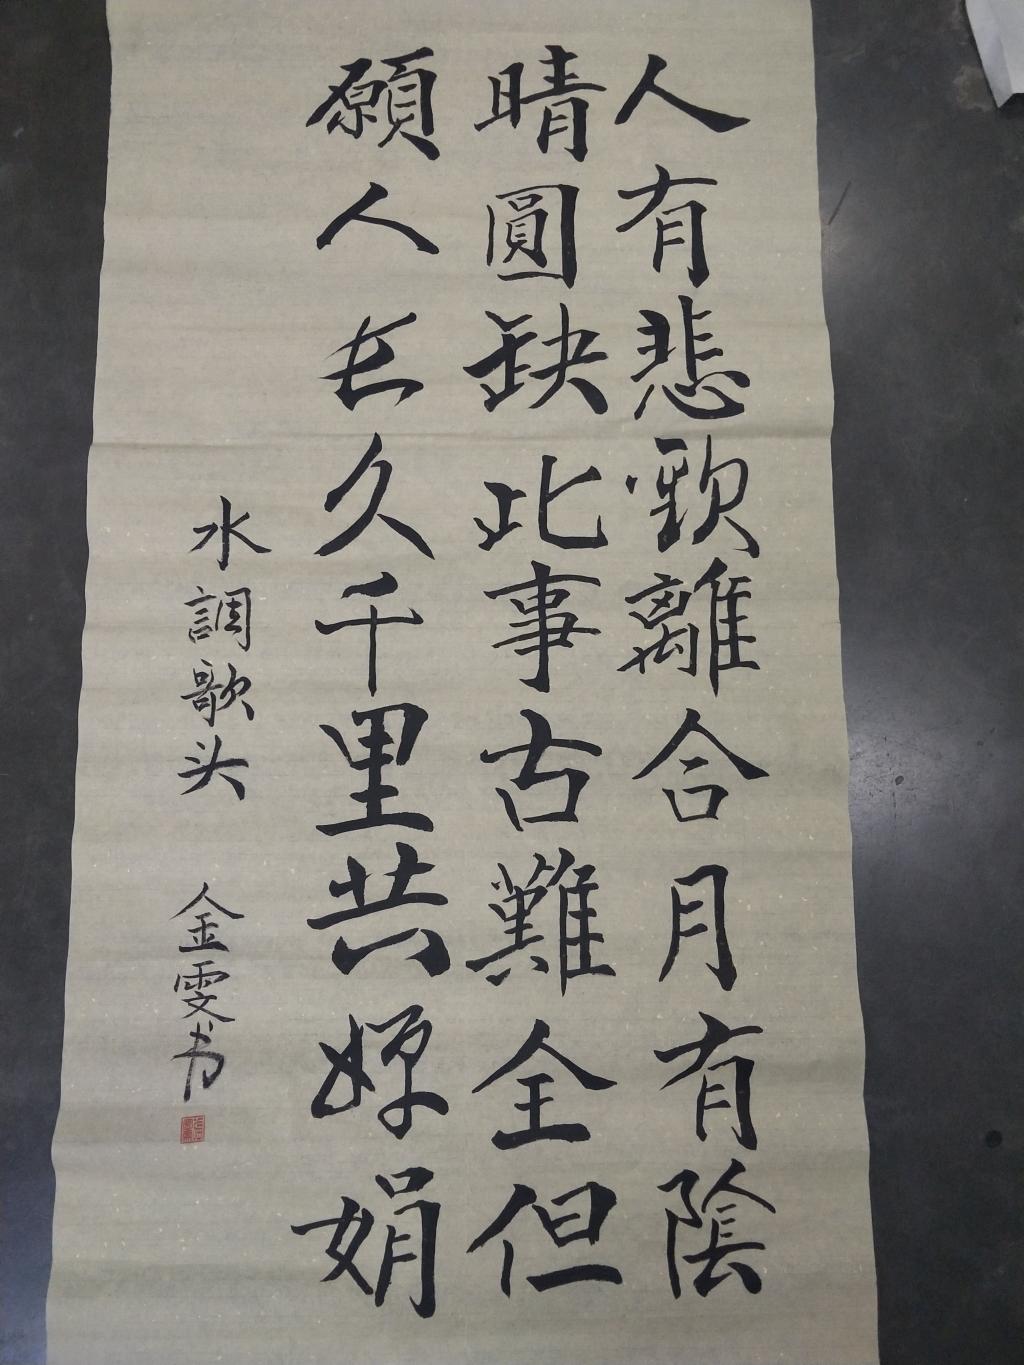 人有悲歡離合月有陰
晴圓缺此事古難全但
願人长久千里共嬋娟
水調歌头
金雯书